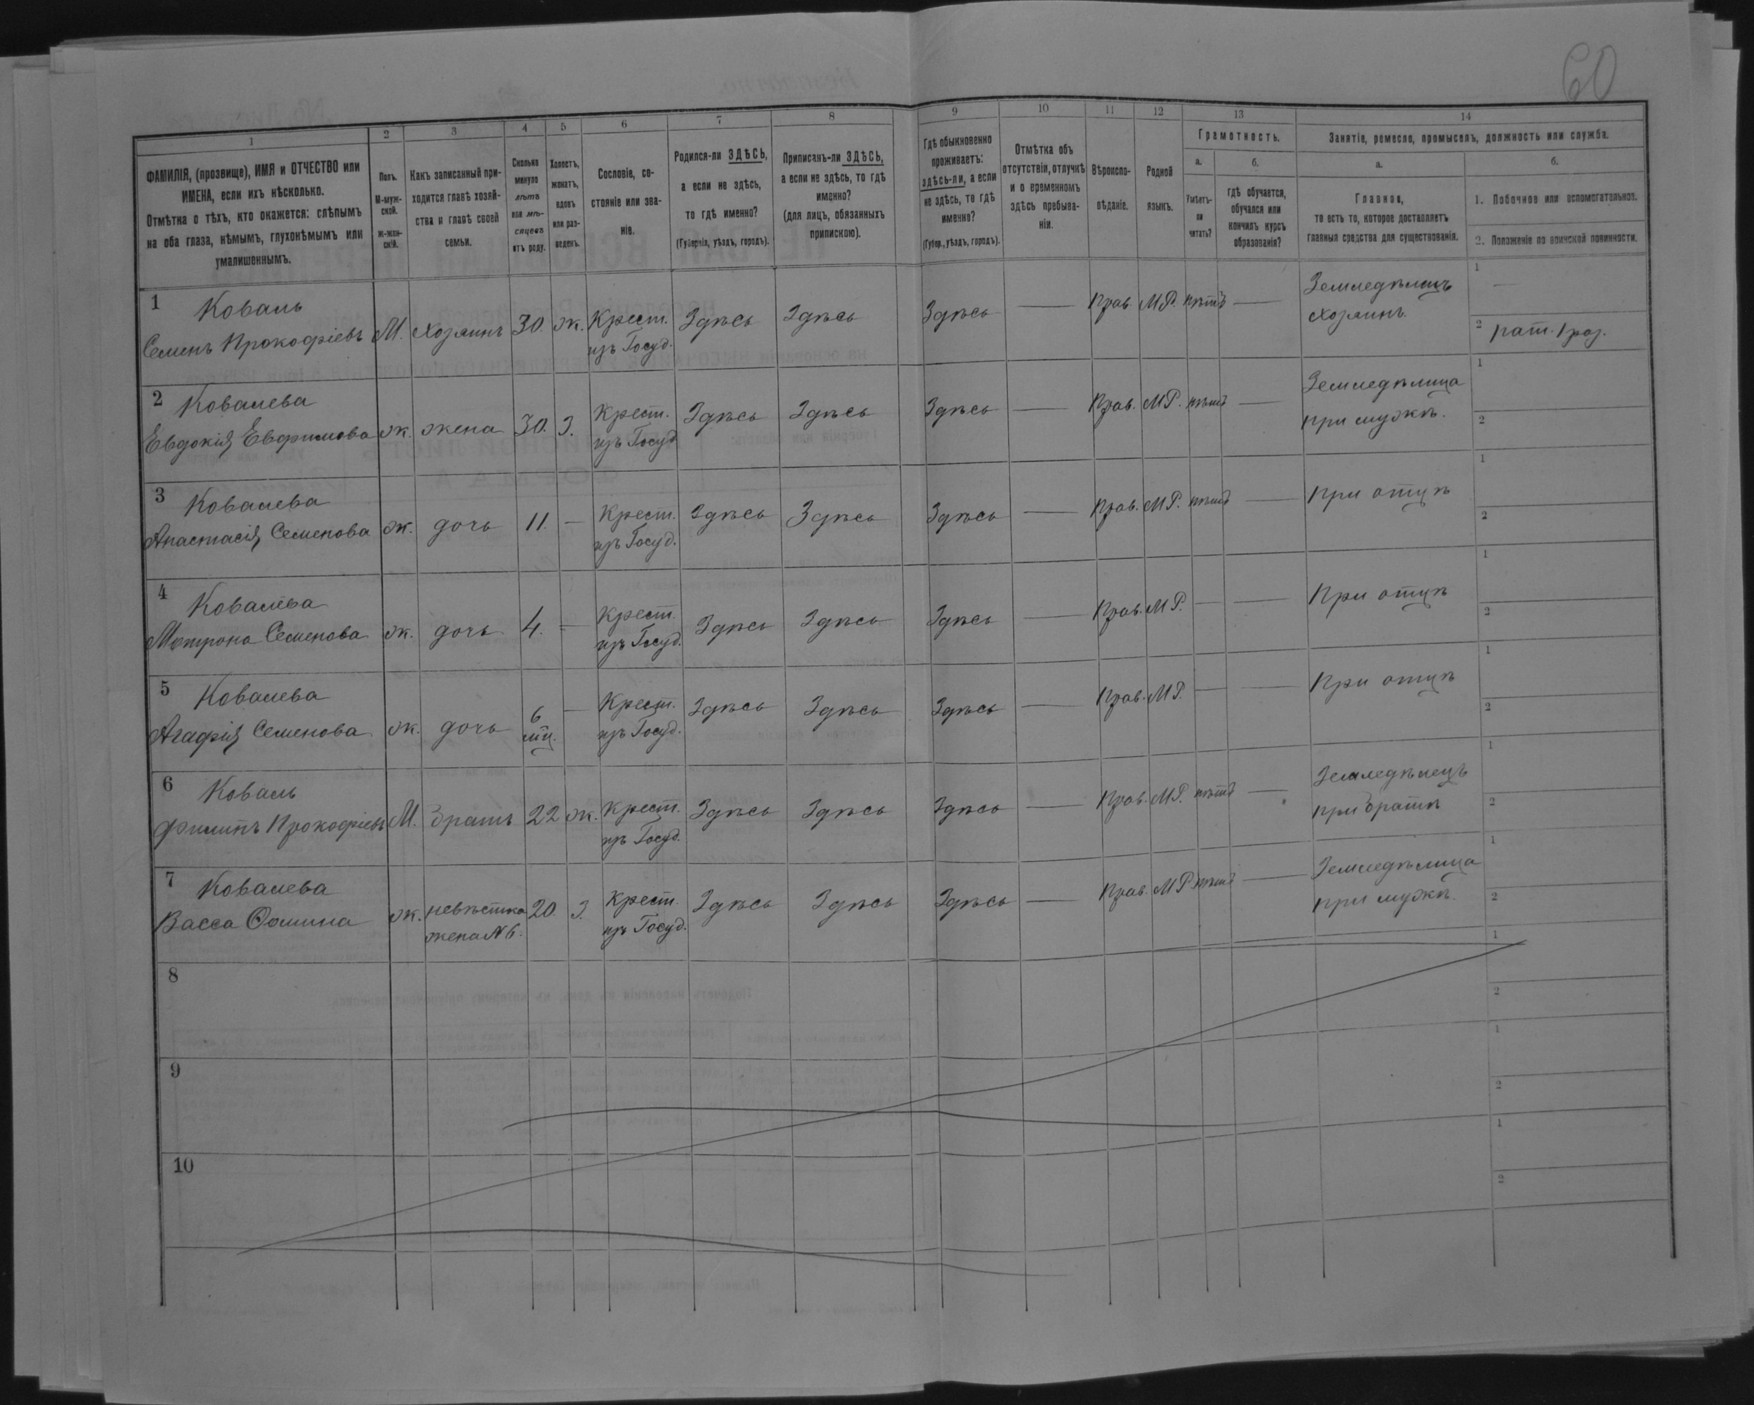 60
1 2 3 4 5 6 7 8 9 10 11 12 13 14
ФАМИЛІЯ, (прозвище), ИМЯ и ОТЧЕСТВО или
ИМЕНА, если ихъ нѣсколько.
Отмѣтка о тѣхъ, кто окажется: слѣпымъ
на оба глаза, нѣмымъ, глухонѣмымъ или
умалишеннымъ.
Полъ.
М-муж-
ской.
ж-жен-
скій.
Какъ записанный при-
ходится главѣ хозяй-
ства и главѣ своей
семьи.
Сколько
минуло
лѣтъ
или мѣ-
сяцевъ
отъ роду.
Холостъ,
женатъ,
вдовъ
или раз-
веденъ.
Сословіе, со-
стояніе или зва-
ніе.
Родился-ли ЗДѢСЬ,
а если не здѣсь,
то гдѣ именно?
(Губернія, уѣздъ, городъ).
Приписанъ-ли ЗДѢСЬ,
а если не здѣсь, то гдѣ
именно?
(для лицъ, обязанныхъ
припискою).
Гдѣ обыкновенно
проживаетъ:
здѣсь-ли, а если
не здѣсь, то гдѣ
именно?
(Губер., уѣздъ, городъ).
Отмѣтка объ
отсутствіи, отлучкѣ
и о временномъ
здѣсь пребыва-
ніи.
Вѣроиспо-
вѣданіе.
Родной
языкъ.
Грамотность.
а. б.
Умѣетъ-
ли
читать?
гдѣ обучается,
обучался или
кончилъ курсъ
образованія?
Занятіе, ремесло, промыселъ, должность или служба.
а. б.
Главное,
то есть то, которое доставляетъ
главныя средства для существованія.
1. Побочное или вспомогательное.
2. Положеніе по воинской повинности.
1 Коваль
Семенъ Прокофіевъ М. хозяинъ 30. ж. Крест.
изъ Госуд. Здѣсь Здѣсь Здѣсь — Прав. М.Р. нѣтъ — Земледѣлецъ
хозяинъ.
1 —
2 рат. 1 раз.
2 Ковалева
Евдокія Евфимова ж. жена 30. З. Крест.
изъ Госуд. Здѣсь Здѣсь Здѣсь — Прав. М.Р. нѣтъ — Земледѣлица
при мужѣ.
1
2
3 Ковалева
Анастасія Семенова ж. дочь 11. — Крест.
изъ Госуд. Здѣсь Здѣсь Здѣсь — Прав. М.Р. нѣтъ — При отцѣ
1
2
4 Ковалева
Мотрона Семенова ж. дочь 4. — Крест.
изъ Госуд. Здѣсь Здѣсь Здѣсь — Прав. М.Р. — — При отцѣ
1
2
5 Ковалева
Агафія Семенова ж. дочь 6
мц. — Крест.
изъ Госуд. Здѣсь Здѣсь Здѣсь — Прав. М.Р. — — При отцѣ
1
2
6 Коваль
Филипъ Прокофіевъ М. братъ 22 ж. Крест.
изъ Госуд. Здѣсь Здѣсь Здѣсь — Прав. М.Р. нѣтъ — Земледѣлецъ
при братѣ
1
2
7 Ковалева
Васса Фомина ж. невѣстка
жена N 6. 20. З. Крест.
изъ Госуд. Здѣсь Здѣсь Здѣсь — Прав. М.Р. нѣтъ — Земледѣлица
при мужѣ.
1
2
8
1
2
9
1
2
10
1
2